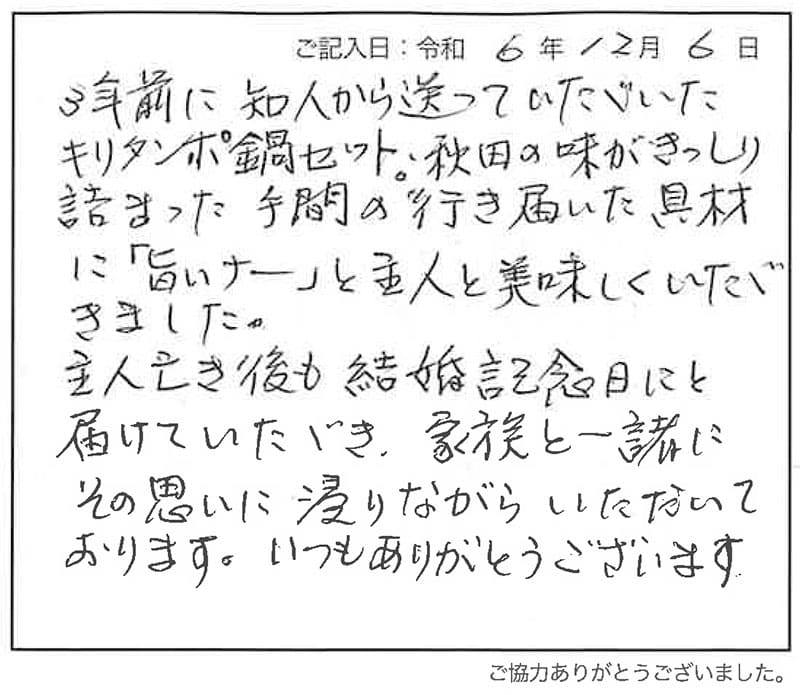 ご記入日：令和 6 年 12 月 6 日
3年前に 知人から送っていただいた
キリタンポ鍋セット。秋田の味がぎっしり
詰まった 手間の行き届いた具材
に「旨いナー」と主人と美味しくいただ
きました。
主人亡き後も 結婚記念日にと
届けていただき、家族と一諸に
その思いに 浸りながら いただいて
おります。いつもありがとうございます
ご協力ありがとうございました。